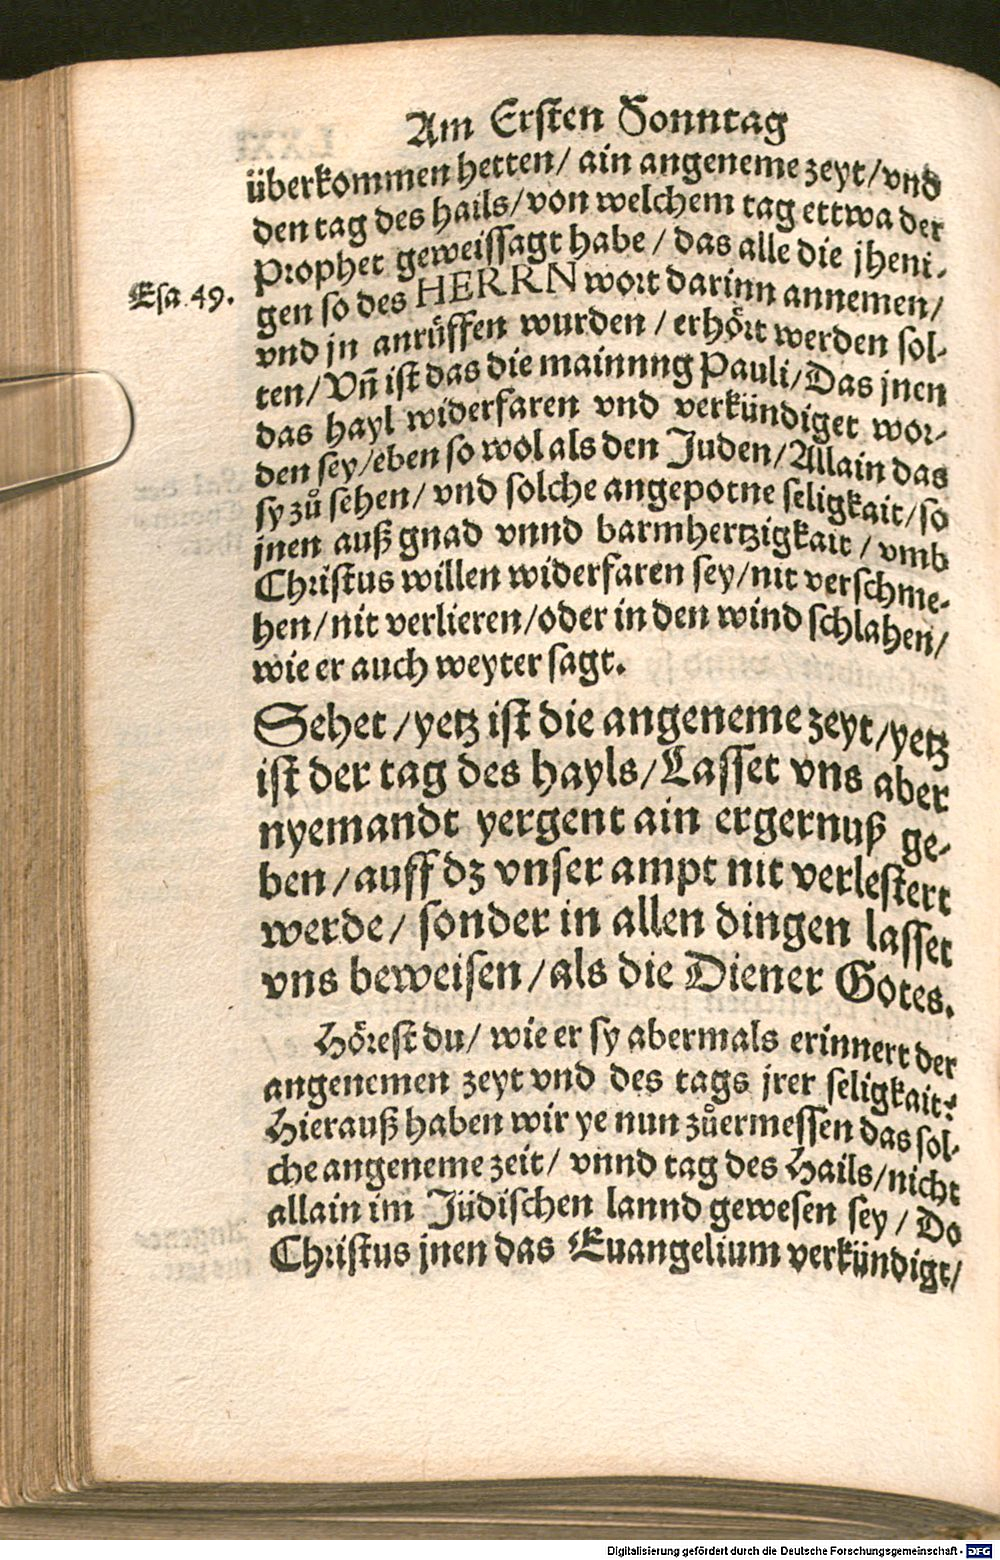 Am Ersten Sonntag
überkommen hetten/ ain angeneme zeyt/vnd
den tag des hails/von welchem tag ettwa der
Prophet geweissagt habe / das alle die jheni-
Esa. 49.
gen so des HERRN wort darinn annemen/
vnd jn anrůffen wurden / erhört werden sol-
ten/Vñ ist das die mainnng Pauli/Das jnen
das hayl widerfaren vnd verkündiget wor-
den sey/eben so wol als den Juden/Allain das
sy zů sehen/ vnd solche angepotne seligkait/so
jnen auß gnad vnnd barmhertzigkait / vmb
Christus willen widerfaren sey/nit verschme-
hen/nit verlieren/oder in den wind schlahen/
wie er auch weyter sagt.
Sehet /yetz ist die angeneme zeyt/yetz
ist der tag des hayls/Lasset vns aber
nyemandt yergent ain ergernuß ge-
ben/auff dz vnser ampt nit verlestert
werde/ sonder in allen dingen lasset
vns beweisen/als die Diener Gotes.
Hörest du/ wie er sy abermals erinnert der
angenemen zeyt vnd des tags jrer seligkait?
Hierauß haben wir ye nun zůermessen das sol-
che angeneme zeit/ vnnd tag des Hails/nicht
allain im Jüdischen lannd gewesen sey / Do
Christus jnen das Euangelium verkündigt/
Digitalisierung gefördert durch die Deutsche Forschungsgemeinschaft - DFG